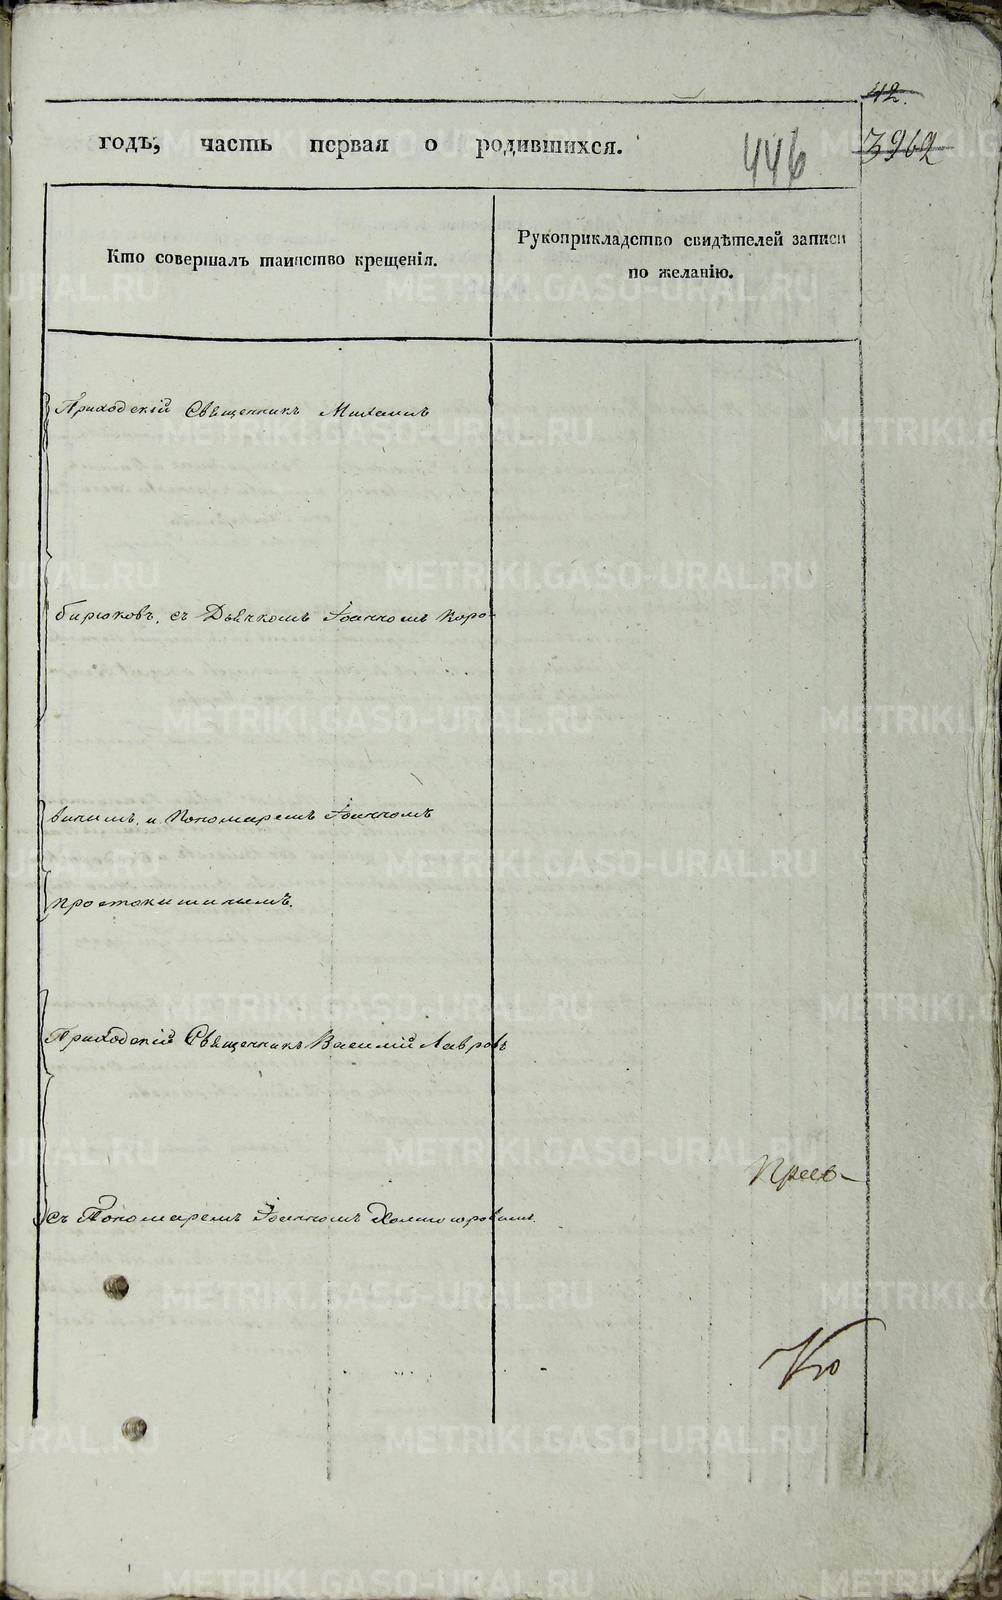 42.
годъ, часть первая о родившихся.
446
3962
Кто совершалъ таинство крещенія.
Рукоприкладство свидѣтелей записи
по желанію.
Приходскій Священникъ Михаилъ
Бирюковъ, съ Дьячкомъ Іоанномъ Коро-
винымъ, и Пономаремъ Іоанномъ
Простокишинымъ.
Приходскій Священникъ Василій Лавровъ
съ Пономаремъ Іоанномъ Холмогоровымъ.
METRIKI.GASO-URAL.RU